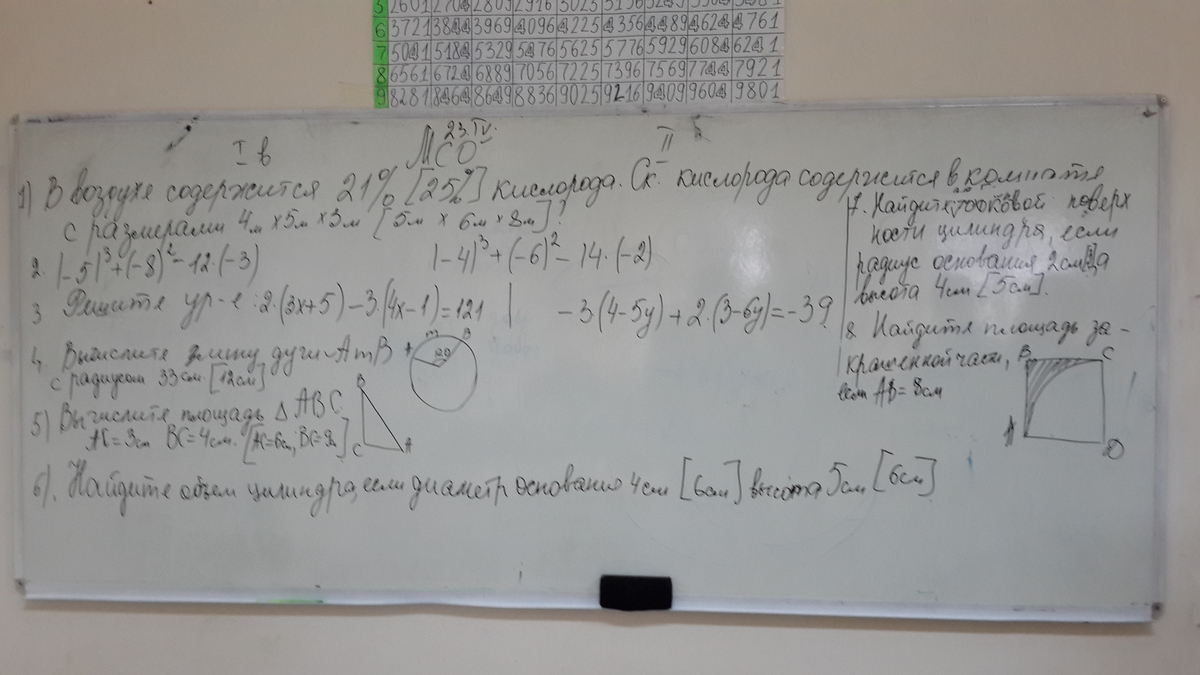 6 3721 3844 3969 4096 4225 4356 4489 4624 4761
7 5041 5184 5329 5476 5625 5776 5929 6084 6241
8 6561 6724 6889 7056 7225 7396 7569 7744 7921
9 8281 8464 8649 8836 9025 9216 9409 9604 9801
23.IV.
I в МСО II
1) В воздухе содержится 21% [25%] кислорода. Ск. кислорода содержится в комнате
с размерами 4м × 5м × 3м [5м × 6м × 3м]?
2. |-5|³+(-8)²-12·(-3) |-4|³+(-6)²-14·(-2)
3 Решите ур-е: 2·(3x+5)-3·(4x-1)=121 | -3(4-5y)+2·(3-6y)=-39
4. Вычислите длину дуги AmB
с радиусом 33см. [12см]
A m B
5) Вычислите площадь △ABC
AC=3см BC=4см. [AC=6см, BC=9см]
B
C A
6). Найдите объем цилиндра, если диаметр основания 4см [6см] высота 5см [6см]
7. Найдите боковой поверх
ности цилиндра, если
радиус основания 2см, а
высота 4см [5см].
8 Найдите площадь за-
крашенной части,
если AB=8см
B C
A D